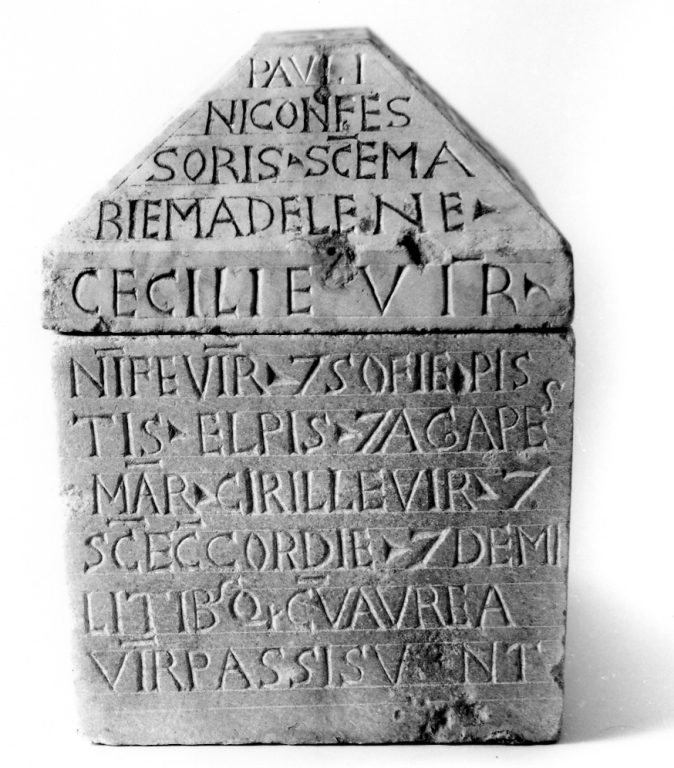 PAVLI
NICONFES
SORIS SC̅EMA
RIEMADELENE
CECILIE VI̅R
NI̅FEVI̅R 7SOFIE PIS
TIS ELPIS 7AGAPES
MA̅R CIRILLEVIR 7
SC̅EC̅CORDIE 7DEMI
LITIBSQ C̅VAVREA
VI̅RPASSISVNT